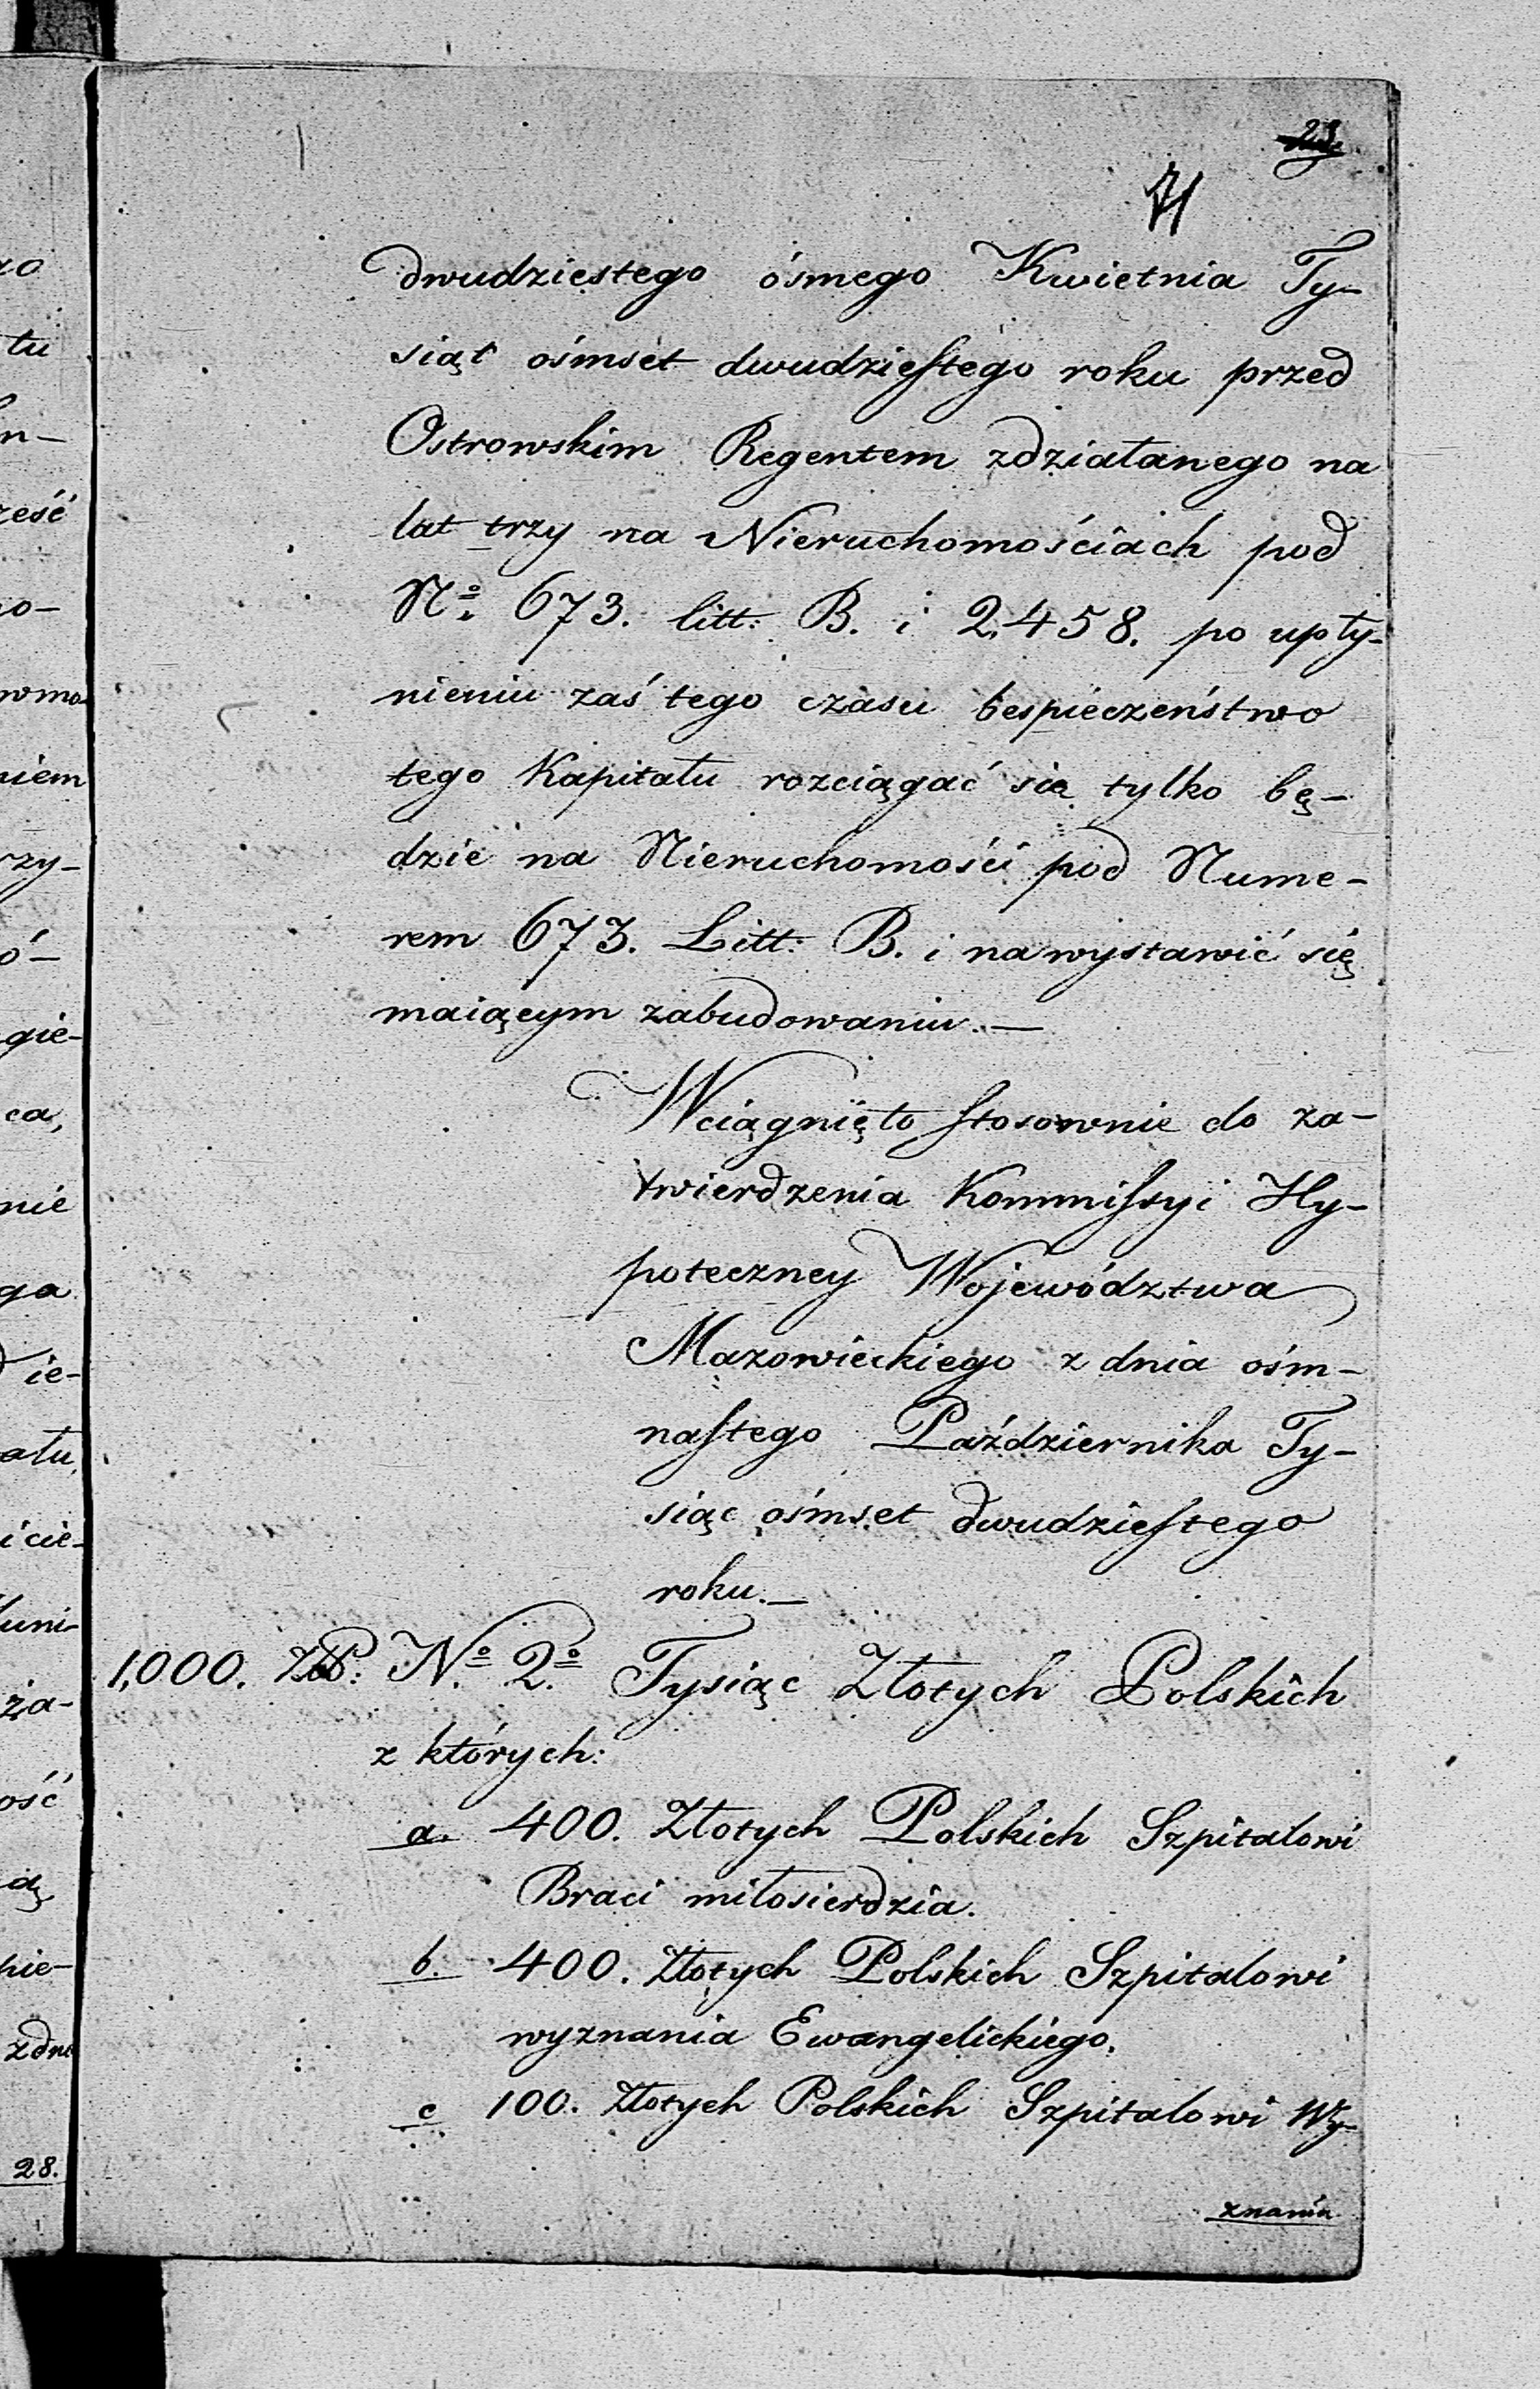 23
71
dwudziestego ósmego Kwietnia Ty-
siąc ośmset dwudziestego roku przed
Ostrowskim Regentem zdziałanego na
lat trzy na Nieruchomościach pod
No. 673. litt: B. i 2,458. po upły-
nieniu zaś tego czasu bespieczeństwo
tego Kapitału rozciągać się tylko bę-
dzie na Nieruchomości pod Nume-
rem 673. Litt: B. i na wystawić się
maiącym zabudowaniu.—
Wciągnięto stosownie do za-
twierdzenia Kommissyi Hy-
poteczney Województwa
Mazowieckiego z dnia ośm-
nastego Października Ty-
siąc ośmset dwudziestego
roku.—
1,000. ZłP: No. 2o. Tysiąc Złotych Polskich
z których:
a. 400. Złotych Polskich Szpitalowi
Braci miłosierdzia.
b. 400. Złotych Polskich Szpitalowi
wyznania Ewangelickiego.
c 100. Złotych Polskich Szpitalowi Wy-
znania
ro
tu
n-
ześć
no-
wmo-
niem
rzy-
ó-
gie-
ca,
nie
ga
ie-
atu
i cie-
uni-
ża-
ość
ą
nie-
zdni
28.